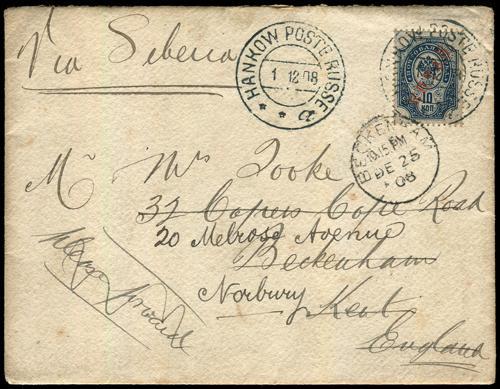 Via Siberia
HANKOW POSTE RUSSE
1 12 08
a
HANKOW POSTE RUSSE
10
КОП
BECKENHAM
10.15 PM
DE 25
08
Mrs Tooke
37 Copers Cope Road
20 Melrose Avenue
Beckenham
Norbury
Kent
England
Please forward